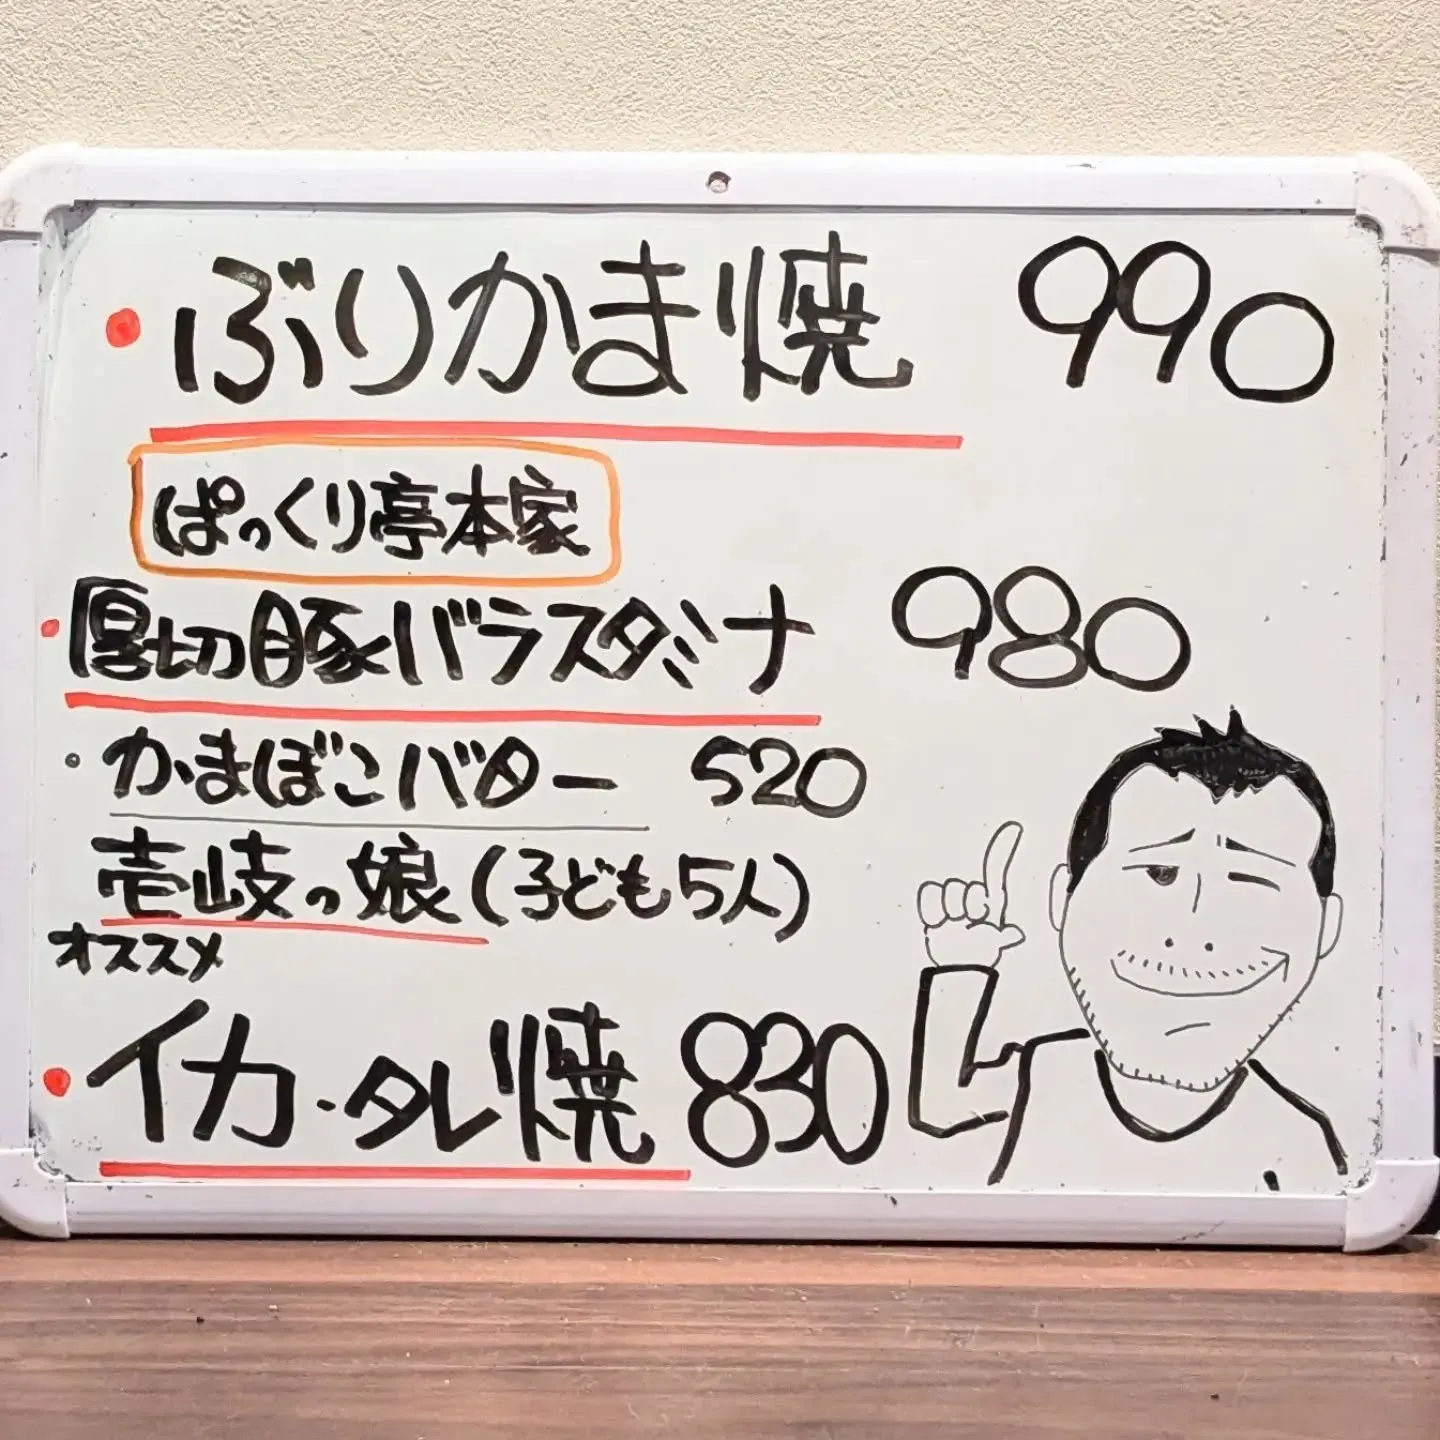 ・ぶりかま焼 990
ぱっくり亭本家
・厚切豚バラスタミナ 980
・かまぼこバター 520
壱岐っ娘(子ども5人)
オススメ
・イカ・タレ焼 830